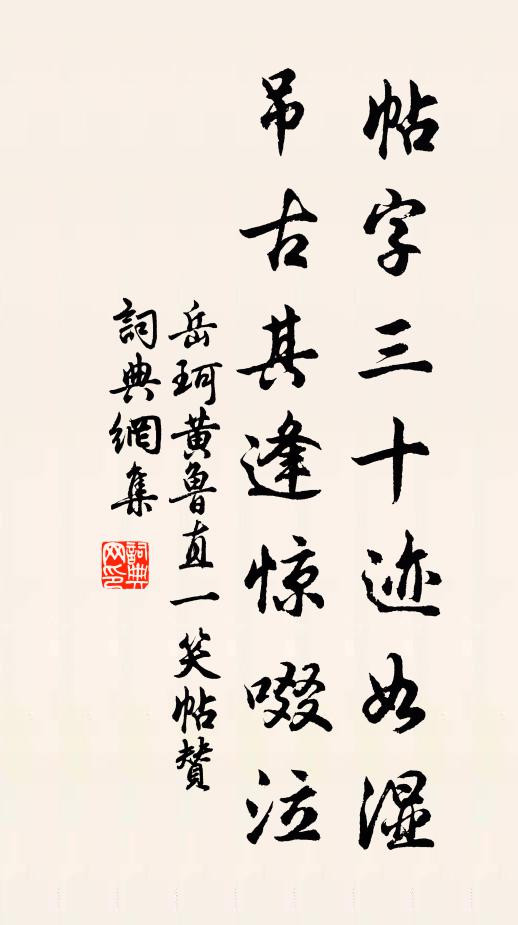 帖字三十迹如湿
吊古其逢惊啜泣
岳珂黄魯直一笑帖贊
詞典網集
詞典网印